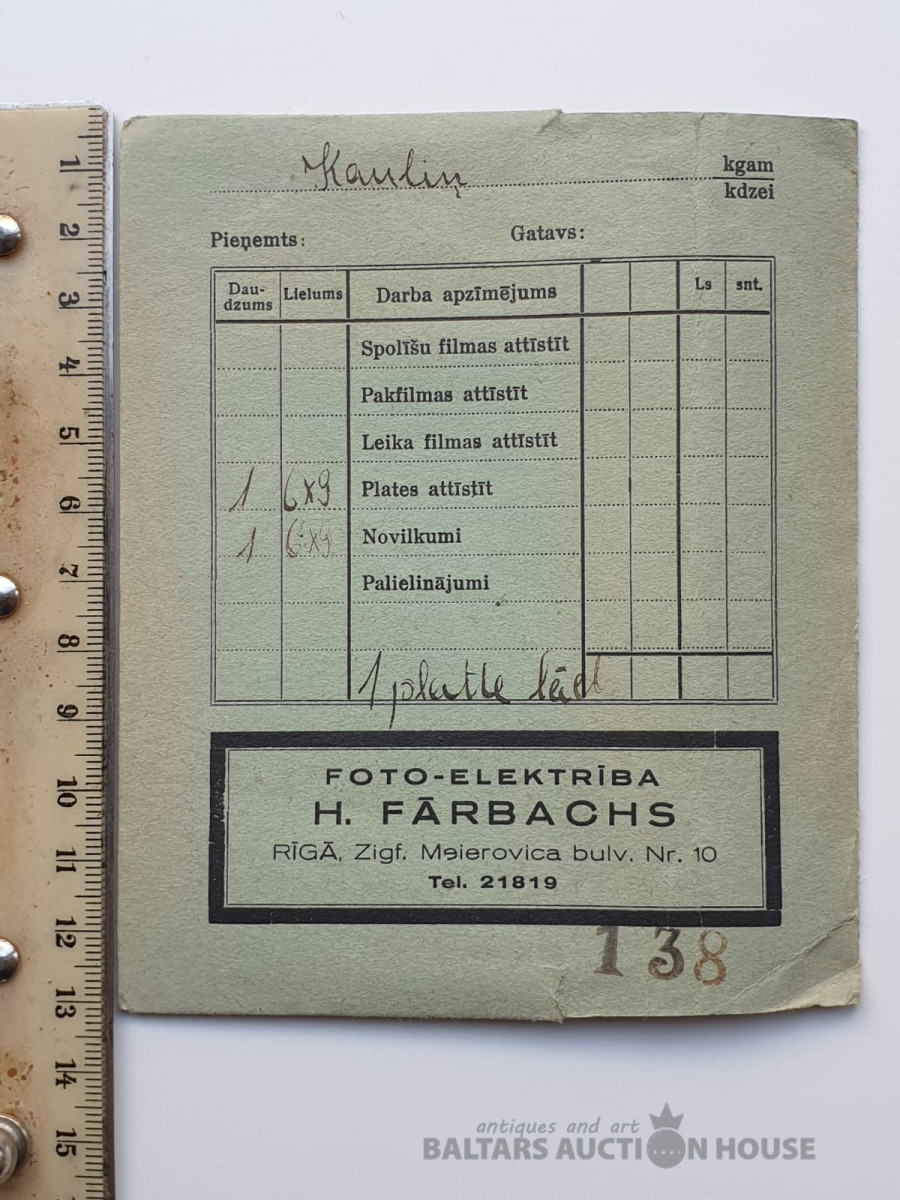 Kauliņ kgam
kdzei
Pieņemts: Gatavs:
Dau-
dzums Lielums Darba apzīmējums Ls snt.
Spolīšu filmas attīstīt
Pakfilmas attīstīt
Leika filmas attīstīt
1 6x9 Plates attīstīt
1 6x9 Novilkumi
Palielinājumi
1 platte lād
FOTO-ELEKTRĪBA
H. FĀRBACHS
RĪGĀ, Zigf. Meierovica bulv. Nr. 10
Tel. 21819
138
1
2
3
4
5
6
7
8
9
10
11
12
13
14
15
antiques and art
BALTARS AUCTION HOUSE